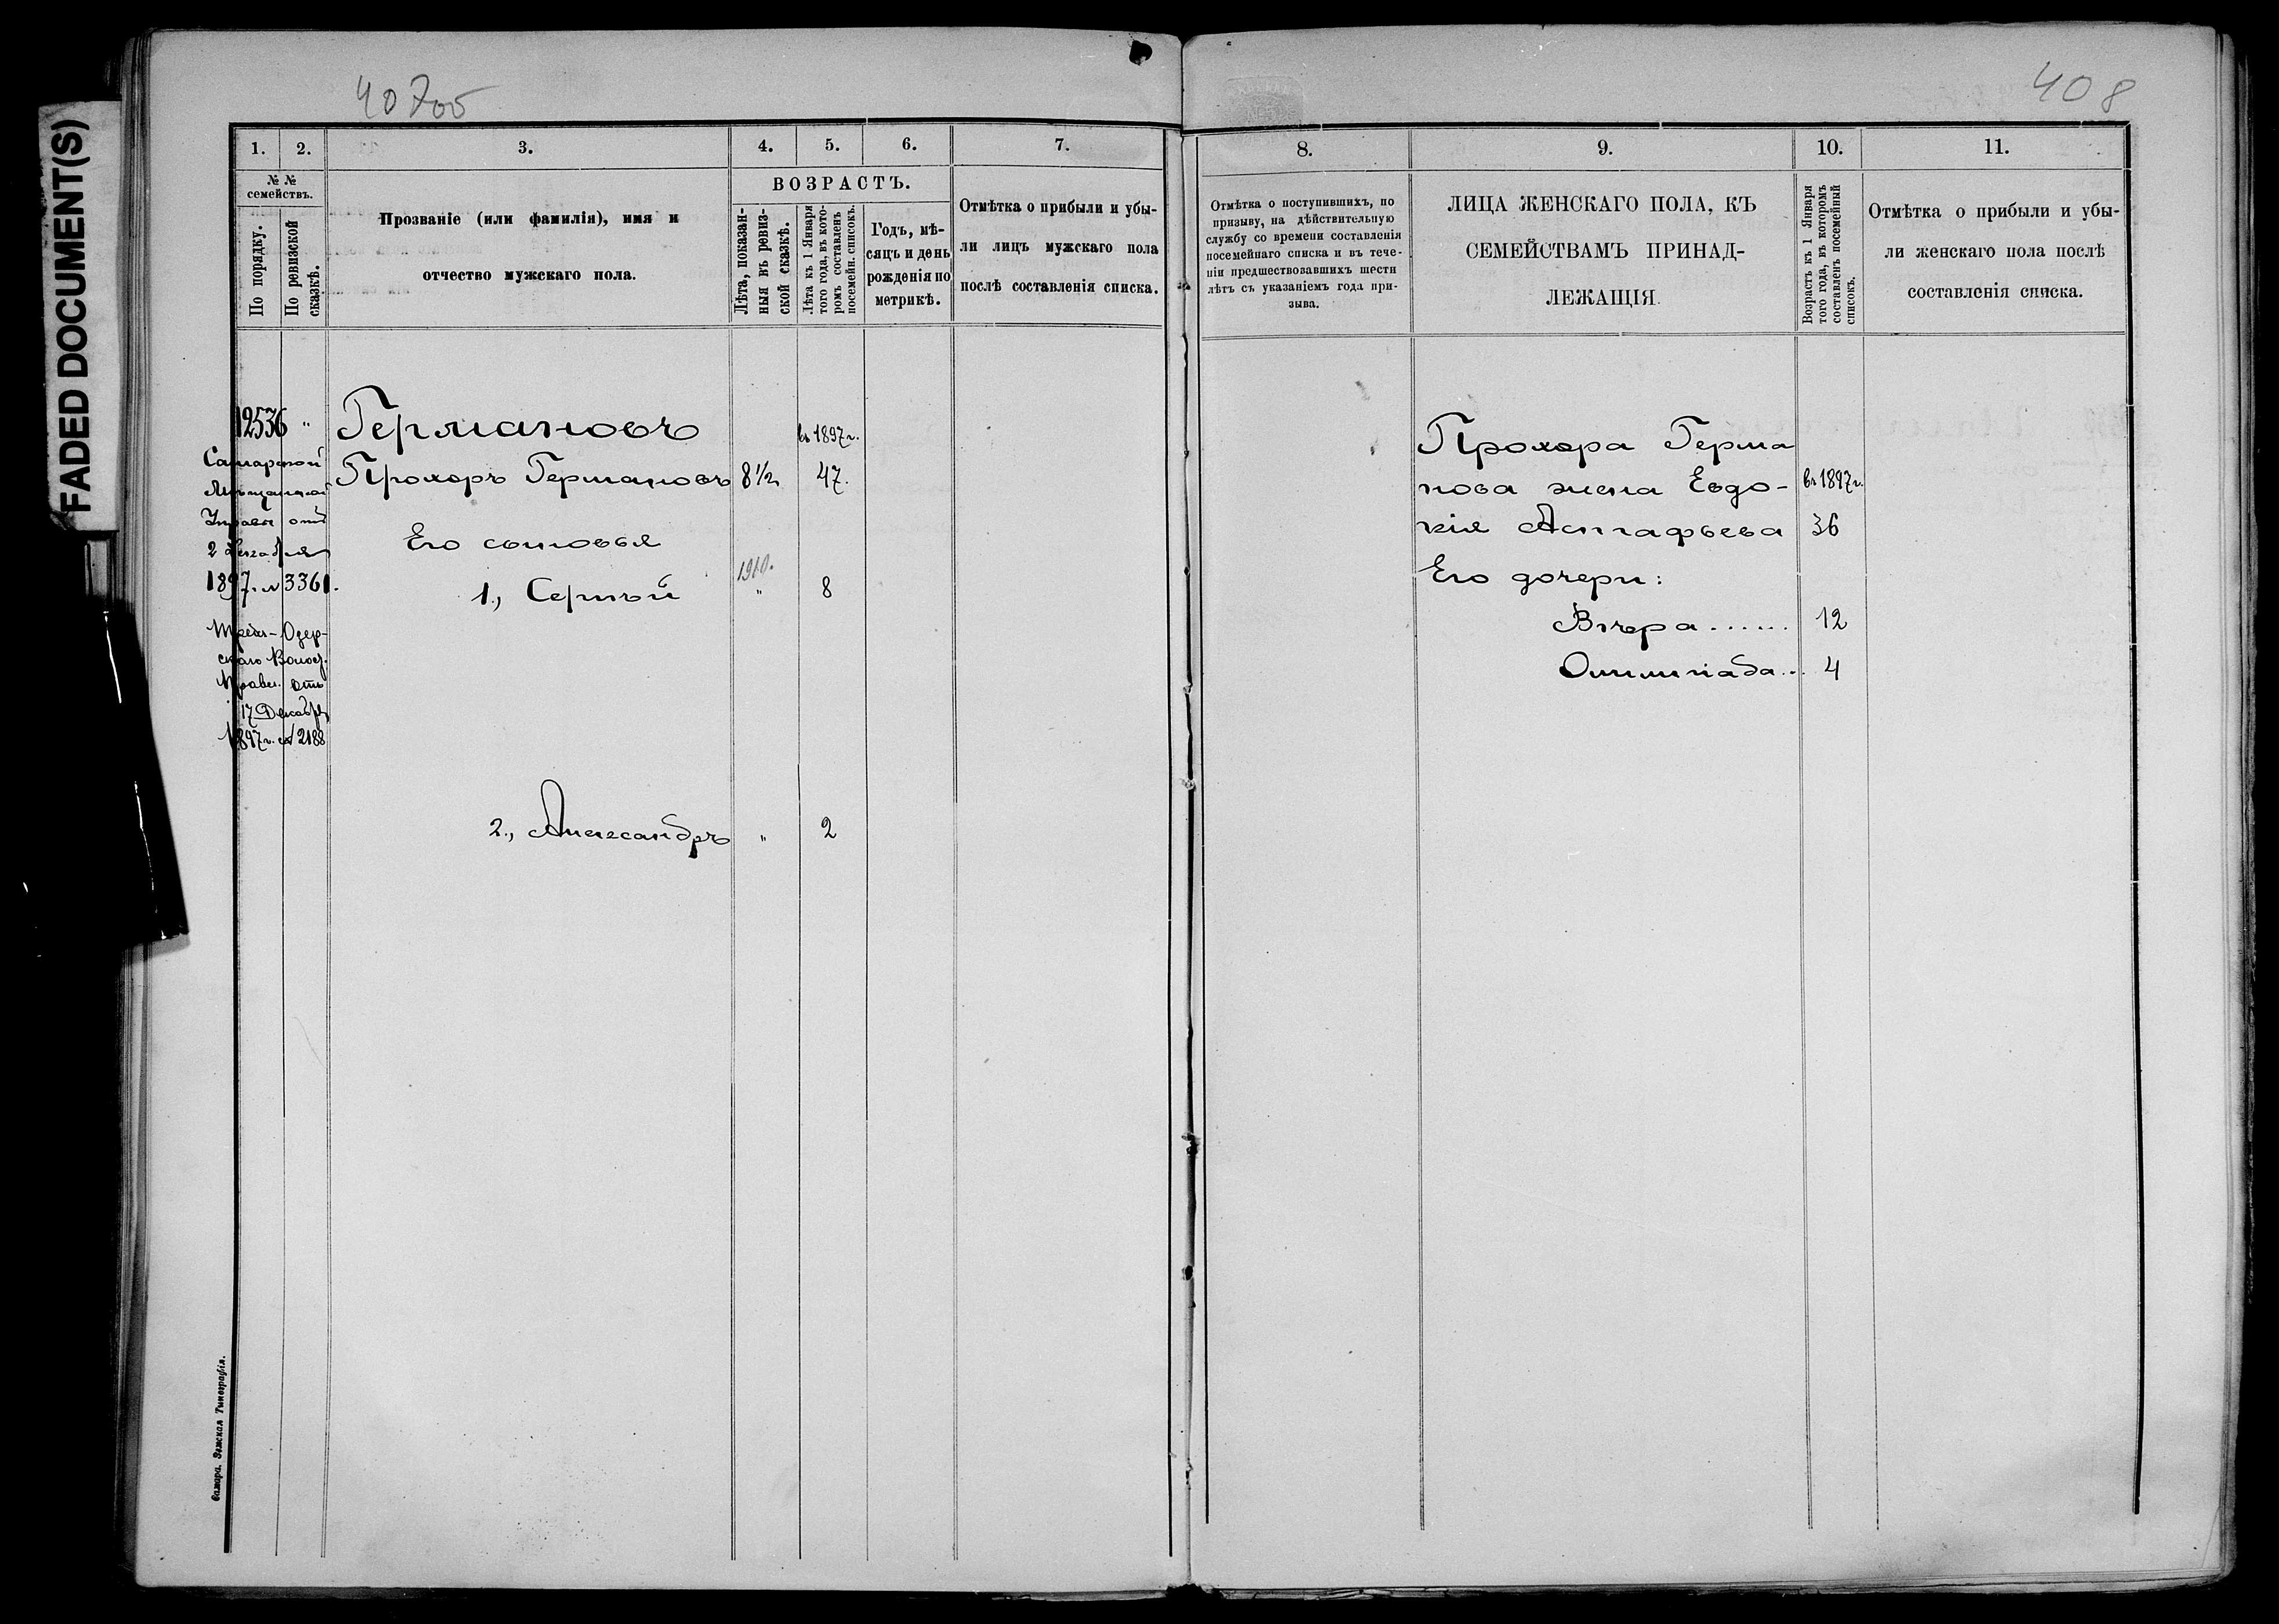 FADED DOCUMENT(S)
407об
408
1.
2.
3.
4.
5.
6.
7.
№ №
семействъ.
По порядку.
По ревизской
сказкѣ.
Прозваніе (или фамилія), имя и
отчество мужскаго пола.
ВОЗРАСТЪ.
Лѣта, показан-
ныя въ ревиз-
ской сказкѣ.
Лѣта къ 1 Января
того года, въ кото-
ромъ составленъ
посемейн. списокъ.
Годъ, мѣ-
сяцъ и день
рожденія по
метрикѣ.
Отмѣтка о прибыли и убы-
ли лицъ мужскаго пола
послѣ составленія списка.
12536 "
Германовъ
въ 1897 г.
Самарской
Мѣщанской
Управы отъ
2 Декабря
1897 г. № 3361.
Волост.
Правл. отъ
17 Декабря
1897 г. № 2188
Прохоръ Германовъ 8 1/2 47.
Его сыновья
1910.
1., Сергѣй " 8
2., Александръ " 2
Самара. Земская Типографія.
8.
9.
10.
11.
Отмѣтка о поступившихъ, по
призыву, на дѣйствительную
службу со времени составленія
посемейнаго списка и въ тече-
ніи предшествовавшихъ шести
лѣтъ съ указаніемъ года при-
зыва.
ЛИЦА ЖЕНСКАГО ПОЛА, КЪ
СЕМЕЙСТВАМЪ ПРИНАД-
ЛЕЖАЩІЯ.
Возрастъ къ 1 Января
того года, въ которомъ
составленъ посемейный
списокъ.
Отмѣтка о прибыли и убы-
ли женскаго пола послѣ
составленія списка.
Прохора Герма
нова жена Евдо- въ 1897 г.
кія Астафьева 36
Его дочери:
Вѣра...... 12
Олимпіада... 4